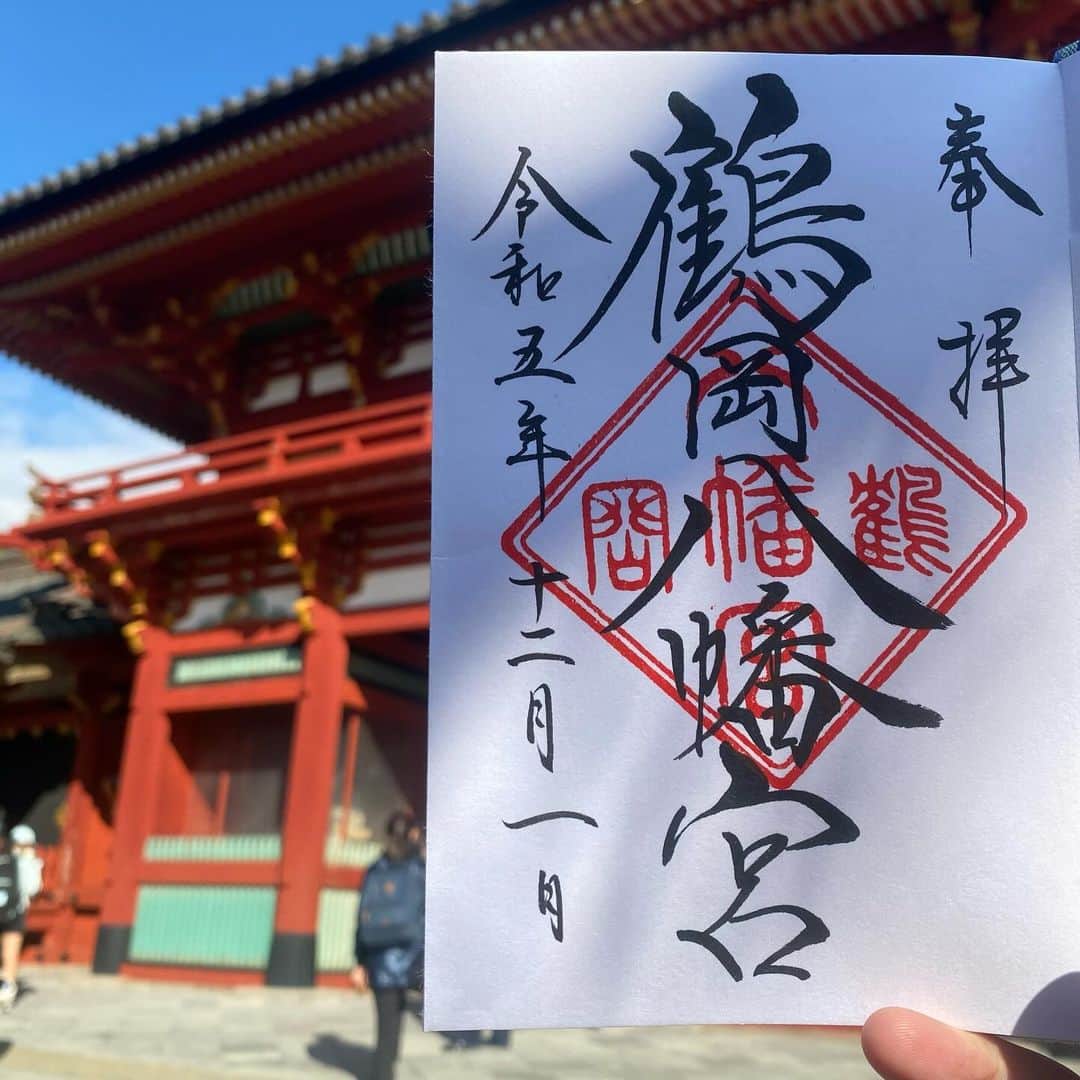 奉拝
鶴岡八幡宮
鶴
岡
八
幡
宮
令和五年十二月一日